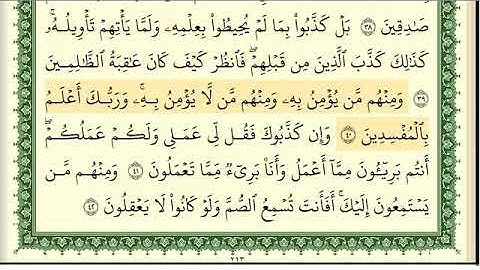 صَـٰدِقِينَ ٣٨ بَلْ كَذَّبُوا۟ بِمَا لَمْ يُحِيطُوا۟ بِعِلْمِهِۦ وَلَمَّا يَأْتِهِمْ تَأْوِيلُهُۥ ۚ
كَذَٰلِكَ كَذَّبَ ٱلَّذِينَ مِن قَبْلِهِمْ ۖ فَٱنظُرْ كَيْفَ كَانَ عَـٰقِبَةُ ٱلظَّـٰلِمِينَ
٣٩ وَمِنْهُم مَّن يُؤْمِنُ بِهِۦ وَمِنْهُم مَّن لَّا يُؤْمِنُ بِهِۦ ۚ وَرَبُّكَ أَعْلَمُ
بِٱلْمُفْسِدِينَ ٤٠ وَإِن كَذَّبُوكَ فَقُل لِّى عَمَلِى وَلَكُمْ عَمَلُكُمْ ۖ
أَنتُم بَرِيٓـُٔونَ مِمَّآ أَعْمَلُ وَأَنَا۠ بَرِىٓءٌ مِّمَّا تَعْمَلُونَ ٤١ وَمِنْهُم مَّن
يَسْتَمِعُونَ إِلَيْكَ ۚ أَفَأَنتَ تُسْمِعُ ٱلصُّمَّ وَلَوْ كَانُوا۟ لَا يَعْقِلُونَ ٤٢
٢١٣